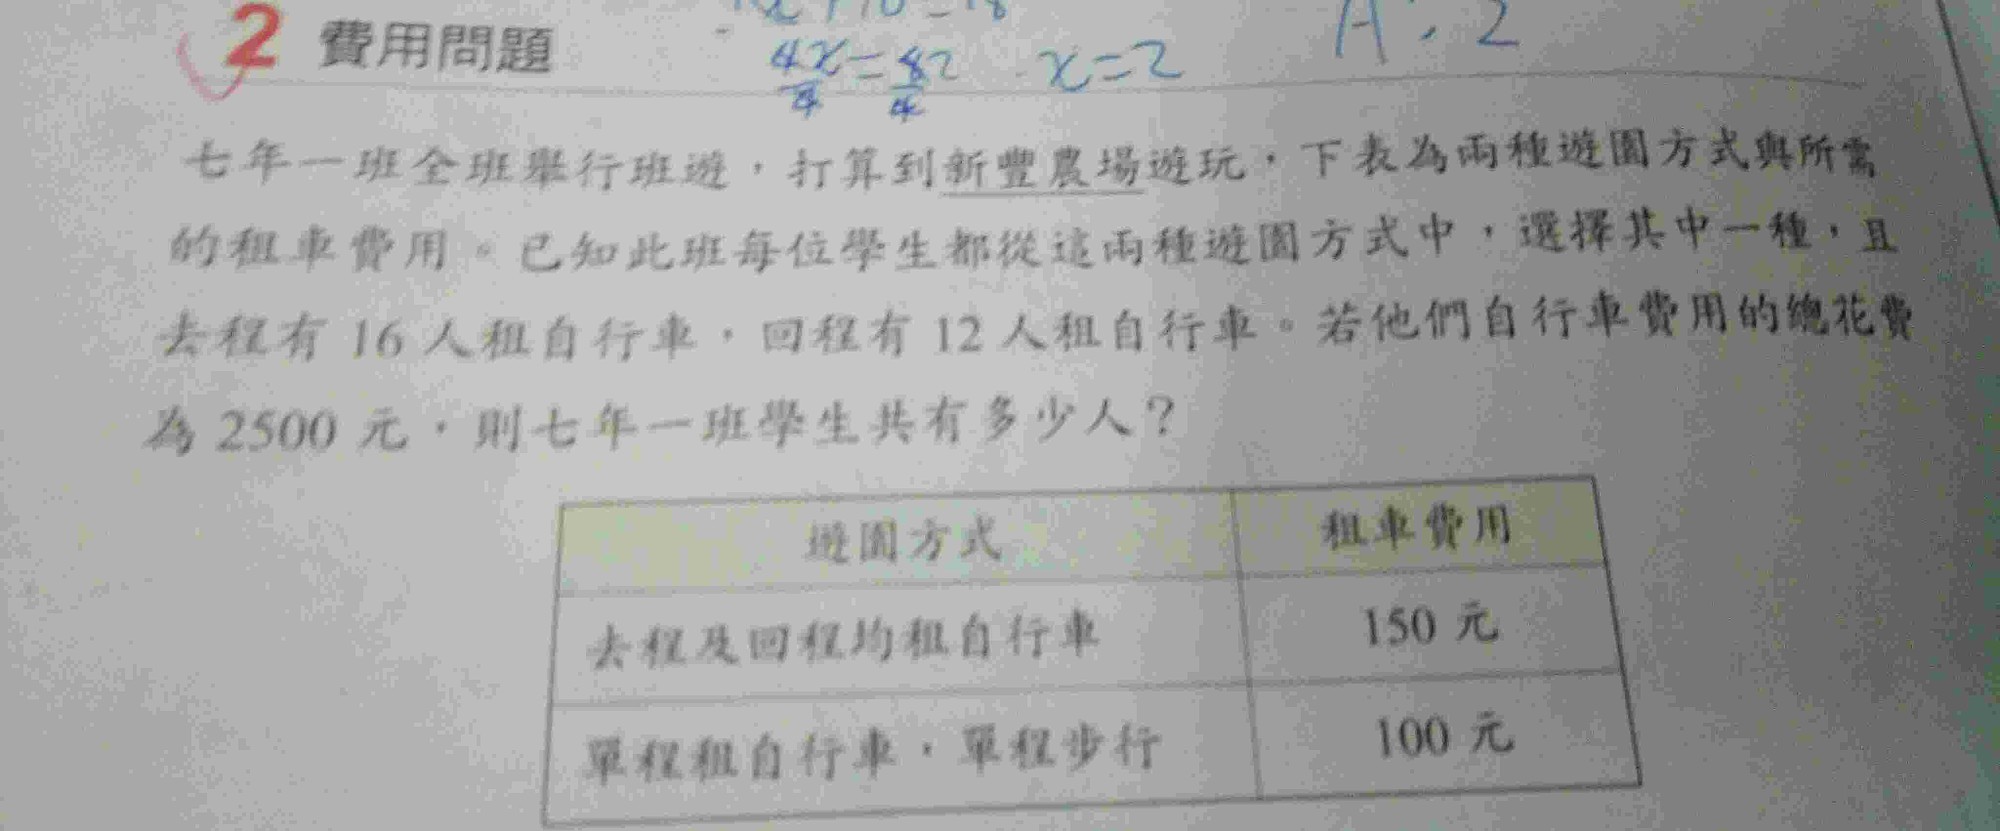 2 費用問題
4x/4=82/4 x=2
A:2
七年一班全班舉行班遊，打算到新豐農場遊玩，下表為兩種遊園方式與所需
的租車費用。已知此班每位學生都從這兩種遊園方式中，選擇其中一種，且
去程有 16 人租自行車，回程有 12 人租自行車。若他們自行車費用的總花費
為 2500 元，則七年一班學生共有多少人？
遊園方式 租車費用
去程及回程均租自行車 150 元
單程租自行車，單程步行 100 元